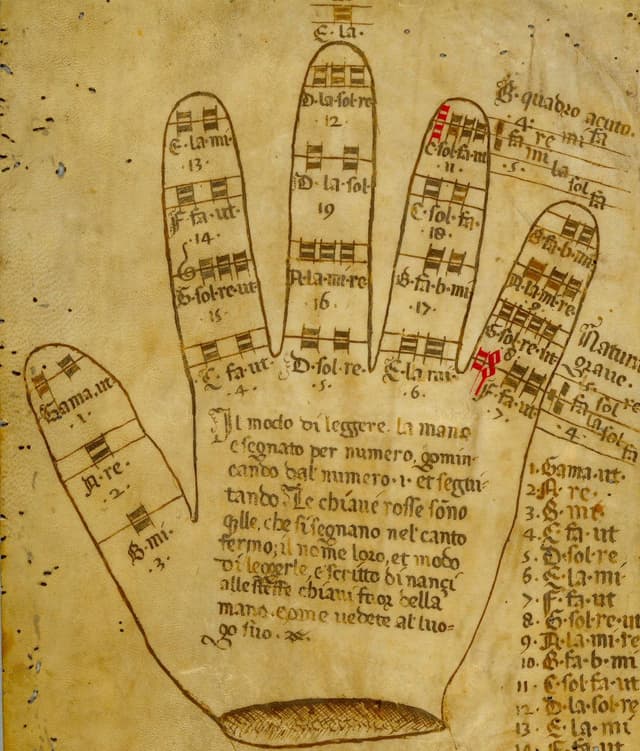 E·la·
D·la·sol·re
·12·
D·la·sol·
19
A·la·mi·re
16
D·sol·re·
·5·
E·la·mi·
·13·
F·fa·ut
·14·
G·sol·re·ut
15
C·fa·ut
·4·
C·sol·fa·ut
11
C·sol·fa·
18
B·fa·b·mi
·17·
E·la·mi·
·6·
B·fa·b·mi
A·la·mi·re
9
G·sol·re·ut
8
F·fa·ut
·7·
Gama·ut
·1·
A·re·
·2·
B·mi·
·3·
B·quadro acuto
·4· re mi fa
fa mi la sol fa
·5·
Natura
grave·
·5· sol re
fa la sol
·4·
Il modo di leggere· la mano
e segnato per numero, gomin-
cando dal numero·1· et segui-
tando· Le chiave rosse sono
qlle, che si segnano nel canto
fermo; il nome loro, et modo
di leggerle, e scritto dinanci
alle steffe chiavi fuor della
mano· come vedete al luo-
go suo·
1·Gama·ut·
2·A·re·
3·B·mi·
4·C·fa·ut
5·D·sol·re
6·E·la·mi
7·F·fa·ut
8·G·sol·re·ut
9·A·la·mi·re
10·B·fa·b·mi
11·C·sol·fa·ut
12·D·la·sol·re
13·E·la·mi
14·F·fa·ut